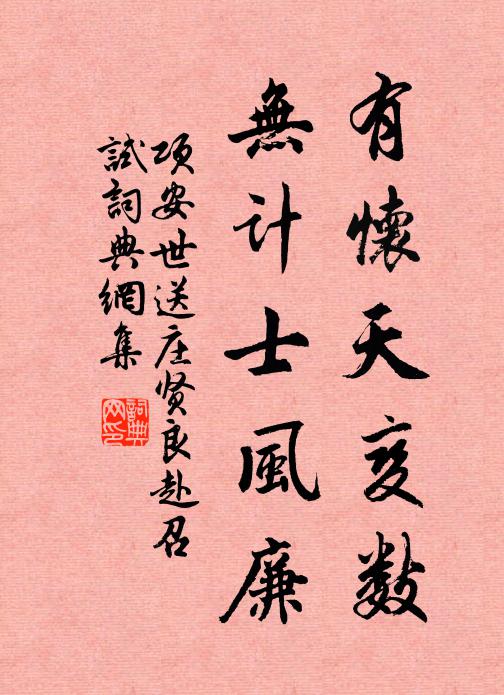 有懷天变数
無計士風廉
项安世送庄贤良赴召
試詞典網集
詞典
网印